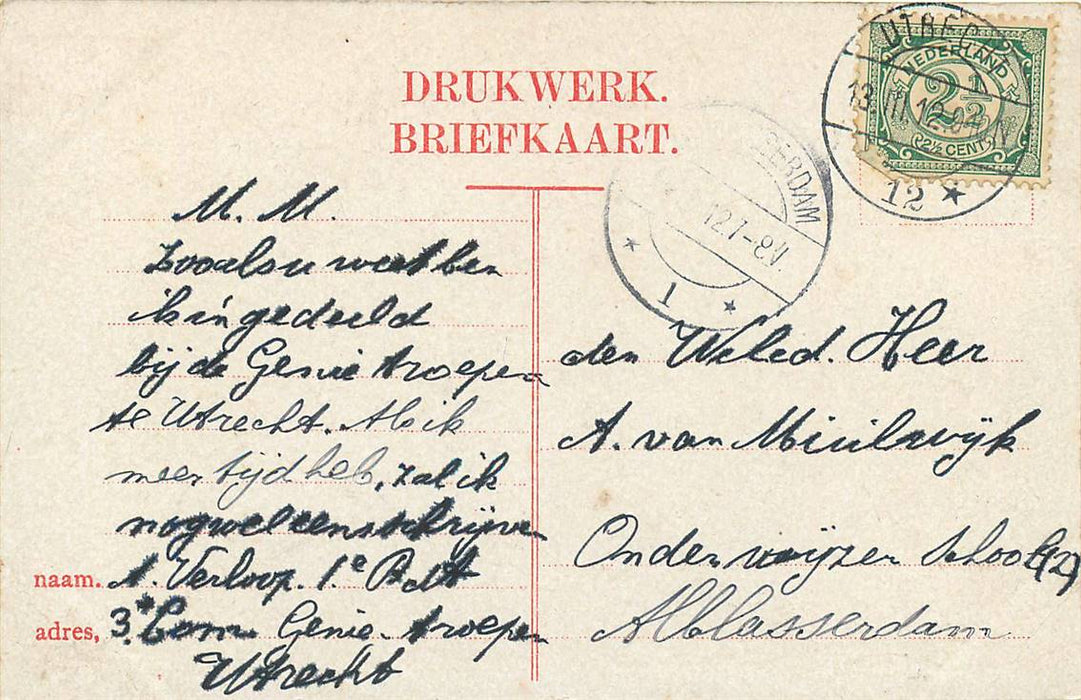 DRUKWERK.
BRIEFKAART.
UTRECHT
13.III.12.0 4-N
12
NEDERLAND
2½
2½ CENT
SERDAM
12.7-8V.
1
M. M.
Zooals u weet ben
ik ingedeeld
bij de Genie troepen
te Utrecht. Als ik
meer tijd heb, zal ik
nog wel eens schrijven
naam. A. Verloop. 1e Batt
adres, 3e Com Genie-troepen
Utrecht
den Weled. Heer
A. van
Onderwijzer School (2)
Alblasserdam